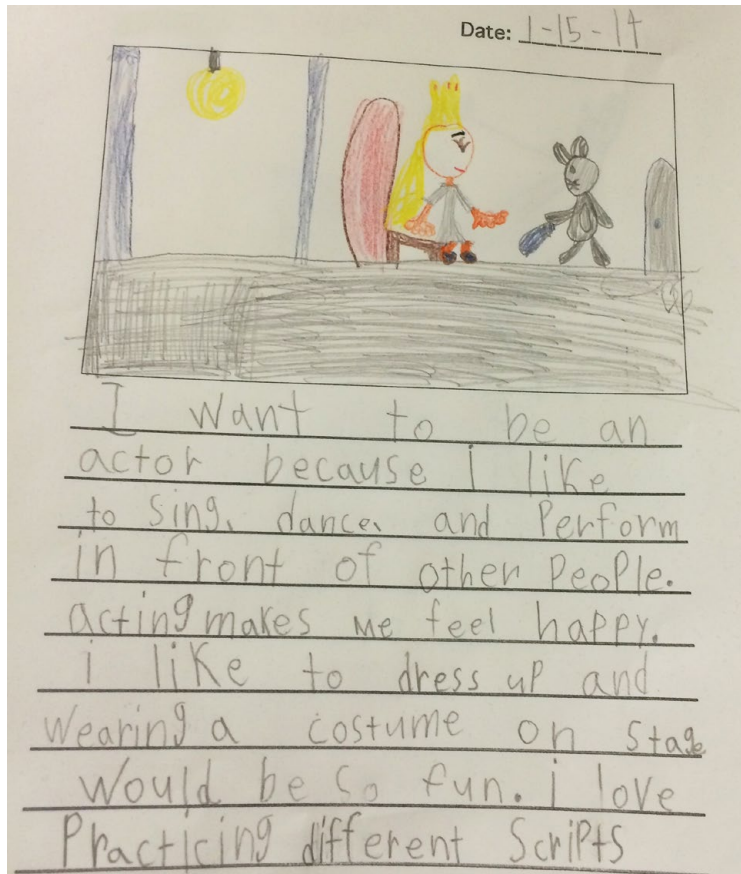 Date: 1-15-14
I want to be an
actor because i like
to sing, dance, and Perform
in front of other People.
acting makes me feel happy.
i like to dress up and
Wearing a costume on stage
would be so fun. i love
Practicing different Scripts